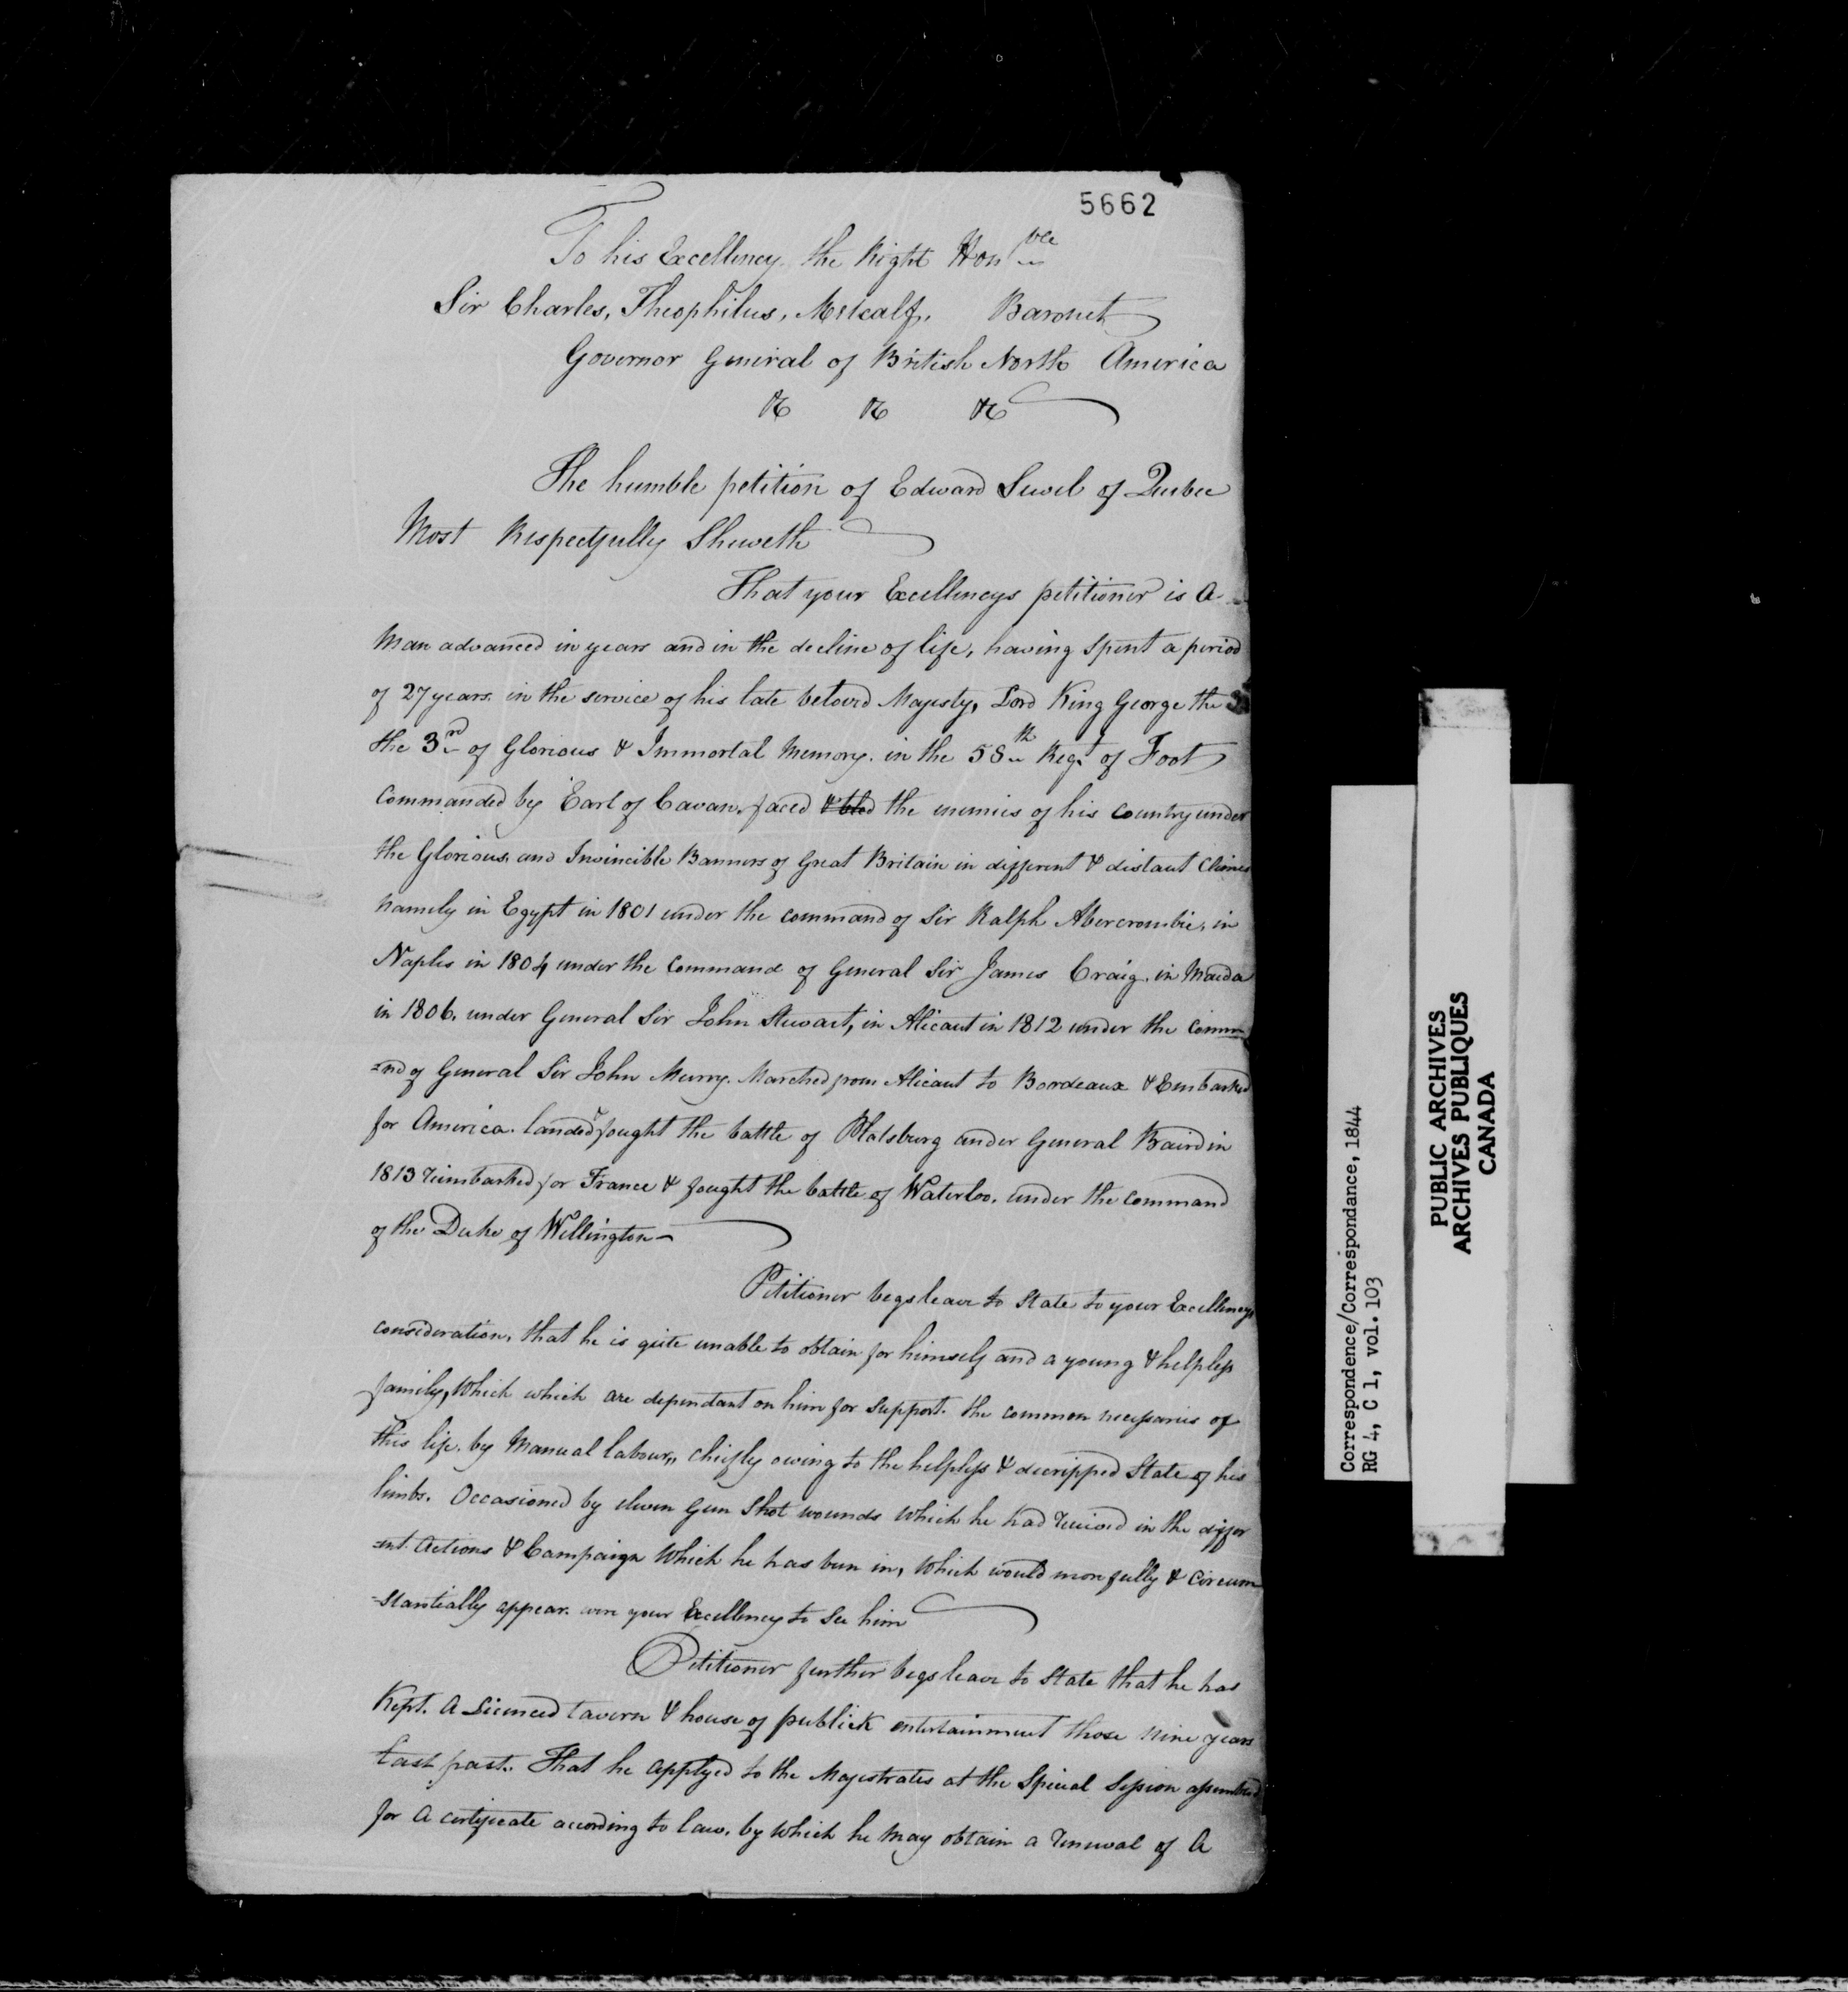 5662
To his Excellency the Right Honble
Sir Charles, Theophilus, Metcalf, Baronet
Governor General of British North America
&c &c &c
The humble petition of Edward Sewel of Quebec
Most Respectfully Sheweth
That your Excellencys petitioner is a
Man advanced in years and in the decline of life, having spent a period
of 27 years in the service of his late beloved Majesty, Lord King George the 3
the 3rd of Glorious & Immortal Memory. in the 58th Regt of Foot
Commanded by Earl of Cavan, faced & bled the enemies of his country under
the Glorious and Invincible Banners of Great Britain in different & distant Climes
namely in Egypt in 1801 under the command of Sir Ralph Abercrombie, in
Naples in 1804 under the Command of General Sir James Craig. in Maida
in 1806. under General Sir John Stewart, in Alicant in 1812 under the Comm-
=nd of General Sir John Murry. Marched from Alicant to Bordeaux & Embarked
for America. landed & fought the battle of Platsburg under General Baird in
1813 reimbarked for France & fought the battle of Waterloo. under the command
of the Duke of Wellington
Petitioner begs leave to State to your Excellencys
consideration, that he is quite unable to obtain for himself and a young & helpless
family, Which which are dependant on him for Support. the common necessaries of
this life. by Manual labour, chiefly owing to the helpless & decripped State of his
limbs. Occasioned by eleven Gun Shot wounds which he had received in the differ
=ent Actions & Campaign Which he has been in, Which would more fully & Circum
=stantially appear. were your Excellency to See him
Petitioner further begs leave to State that he has
Kept. A Licenced tavern & house of publick entertainment those nine years
last past. That he applyed to the Majestrates at the Special Session assembled
for A certificate acording to law, by which he may obtain a renewal of A
Correspondence/Correspondance, 1844
RG 4, C 1, vol. 103
PUBLIC ARCHIVES
ARCHIVES PUBLIQUES
CANADA